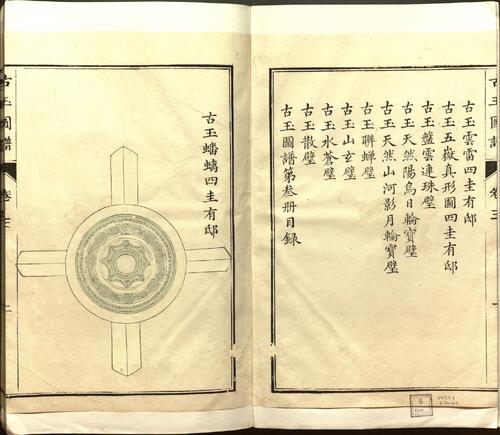 古玉圖譜
卷三
古玉雲雷四圭有邸
古玉五嶽真形圖四圭有邸
古玉盤雲連珠璧
古玉天然陽烏日輪寶璧
古玉天然山河影月輪寶璧
古玉聯蟬璧
古玉山玄璧
古玉水蒼璧
古玉散璧
古玉圖譜第叄册目録
古玉蟠螭四圭有邸
古玉圖譜
6